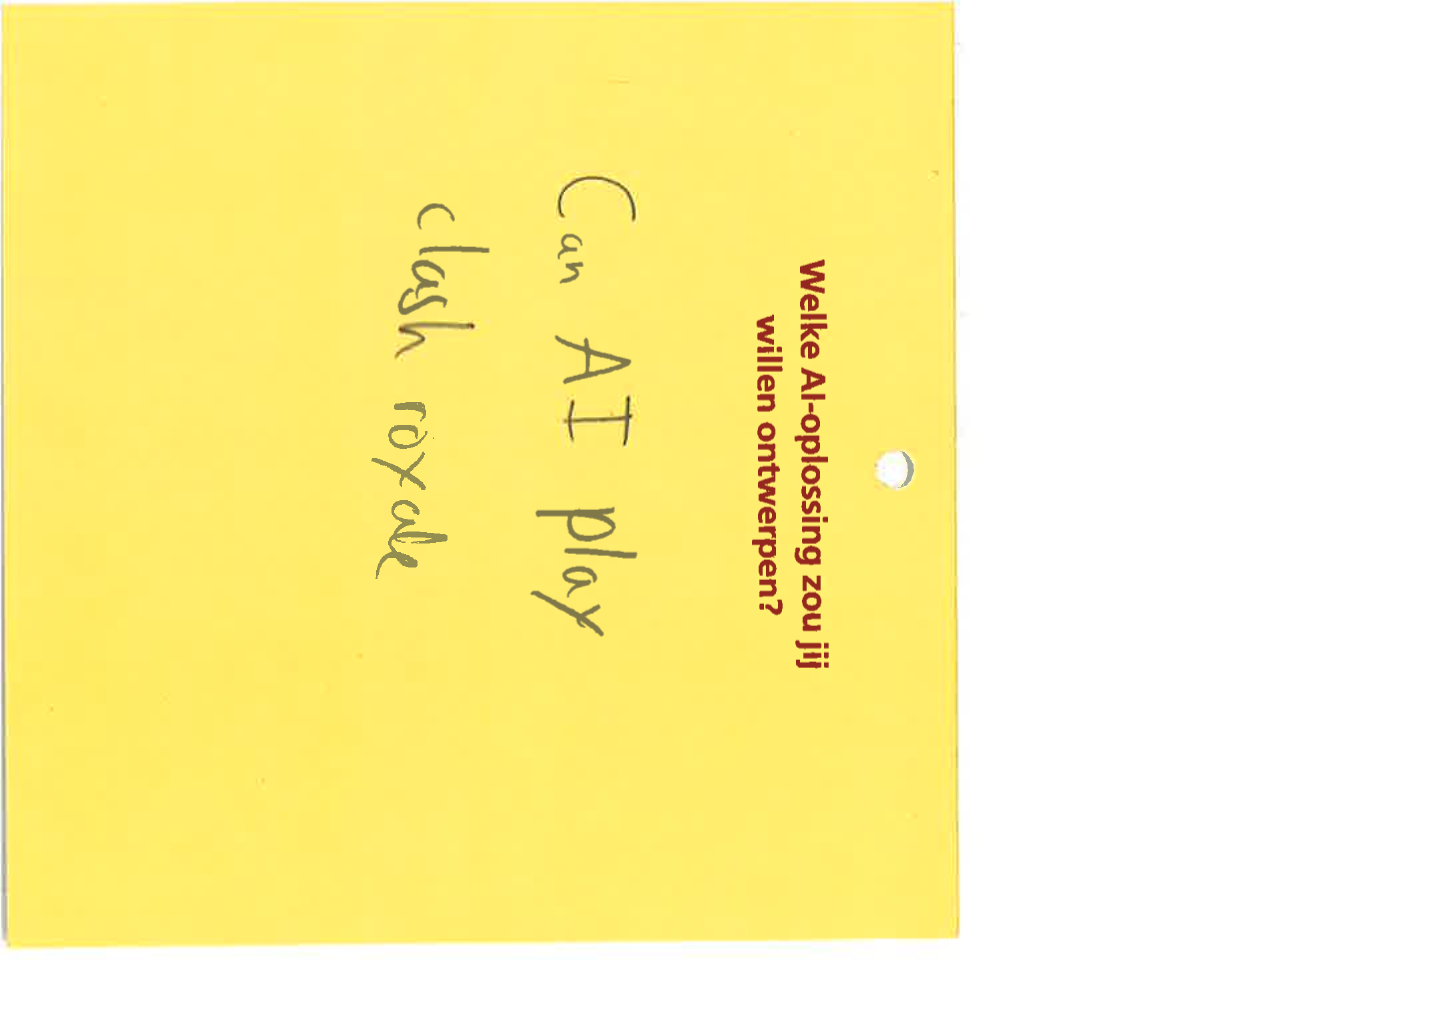 Welke AI-oplossing zou jij
willen ontwerpen?
Can AI play
clash royale